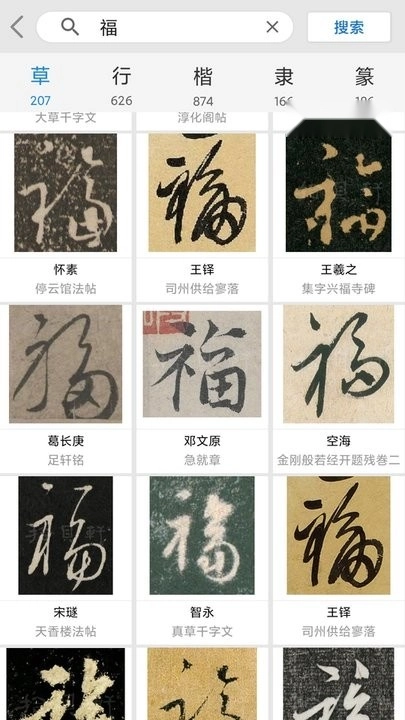 福
搜索
草 行 楷 隶 篆
207 626 874
大草千字文 淳化阁帖
福 福 福
怀素 王铎 王羲之
停云馆法帖 司州供给寥落 集字兴福寺碑
福 福 福
葛长庚 邓文原 空海
足轩铭 急就章 金刚般若经开题残卷二
福 福 福
宋璲 智永 王铎
天香楼法帖 真草千字文 司州供给寥落